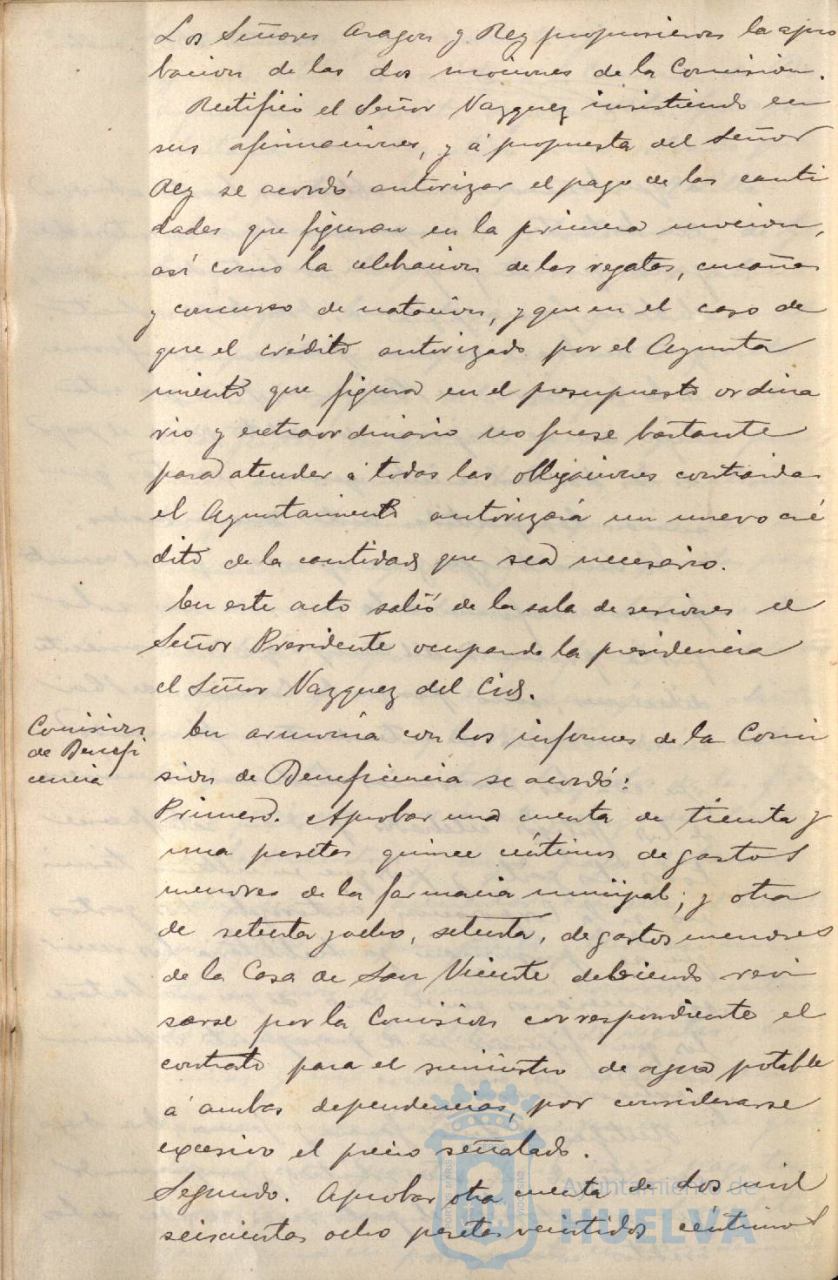 Los Señores Aragon y Rey propusieron la apro
bacion de las dos mociones de la Comision.
Rectificó el Señor Vazquez insistiendo en
sus afirmaciones, y á propuesta del Señor
Rey se acordó autorizar el pago de las canti
dades que figuran en la primera mocion,
así como la celebracion de las regatas, cucañas
y concurso de natacion, y que en el caso de
que el crédito autorizado por el Ayunta
miento que figura en el presupuesto ordina
rio y extraordinario no fuese bastante
para atender á todas las obligaciones contraidas
el Ayuntamiento autorizará un nuevo cré
dito de la cantidad que sea necesario.
En este acto salió de la sala de sesiones el
Señor Presidente ocupando la presidencia
el Señor Vazquez del Cid.
Comision
de Benefi
cencia
En armonía con los informes de la Comi
sion de Beneficencia se acordó:
Primero. Aprobar una cuenta de treinta y
una pesetas quince céntimos de gastos
menores de la farmacia municipal; y otra
de setenta y ocho, setenta, de gastos menores
de la Casa de San Vicente debiendo revi
sarse por la Comision correspondiente el
contrato para el suministro de agua potable
á ambas dependencias, por considerarse
excesivo el precio señalado.
Segundo. Aprobar otra cuenta de dos mil
seiscientas ocho pesetas veintidos céntimos
Ayuntamiento de
HUELVA